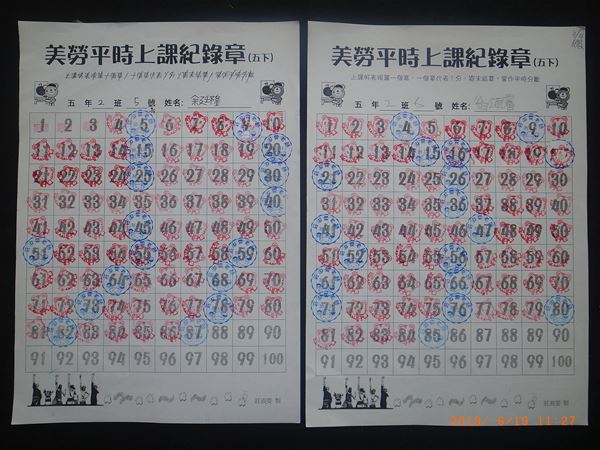 美勞平時上課紀錄章(五下)
五 年 2 班 5 號 姓名:
1 2 3 4 5 6 7 8 9 10
11 12 13 14 15 16 17 18 19 20
21 22 23 24 25 26 27 28 29 30
31 32 33 34 35 36 37 38 39 40
41 42 43 44 45 46 47 48 49 50
51 52 53 54 55 56 57 58 59 60
61 62 63 64 65 66 67 68 69 70
71 72 73 74 75 76 77 78 79 80
81 82 83 84 85 86 87 88 89 90
91 92 93 94 95 96 97 98 99 100
莊淑雯 製
美勞平時上課紀錄章(五下)
五 年 2 班 5 號 姓名:
1 2 3 4 5 6 7 8 9 10
11 12 13 14 15 16 17 18 19 20
21 22 23 24 25 26 27 28 29 30
31 32 33 34 35 36 37 38 39 40
41 42 43 44 45 46 47 48 49 50
51 52 53 54 55 56 57 58 59 60
61 62 63 64 65 66 67 68 69 70
71 72 73 74 75 76 77 78 79 80
81 82 83 84 85 86 87 88 89 90
91 92 93 94 95 96 97 98 99 100
莊淑雯 製
11:27